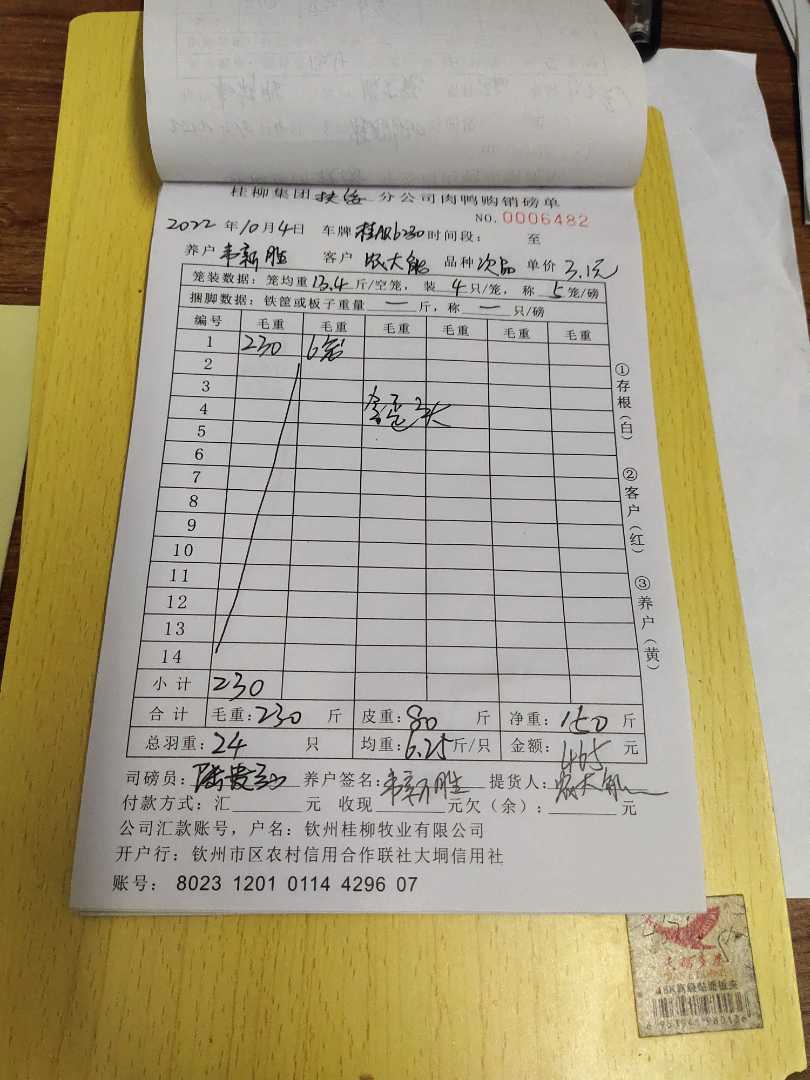 桂柳集团扶绥分公司肉鸭购销磅单
NO.0006482
2022年10月4日 车牌 时间段： 至
养户 韦新胜 客户 农大能 品种 次品 单价 3.1元
笼装数据：笼均重13.4斤/空笼，装4只/笼，称5笼/磅
捆脚数据：铁筐或板子重量一斤，称一只/磅
编号 毛重 毛重 毛重 毛重 毛重 毛重
1 230 6笼
2
3
4 含歪头
5
6
7
8
9
10
11
12
13
14
小计 230
合计 毛重：230斤 皮重：80斤 净重：150斤
总羽重：24只 均重：6.25斤/只 金额：465元
司磅员： 养户签名：韦新胜 提货人：农大能
付款方式：汇 元 收现 元欠（余）： 元
公司汇款账号，户名：钦州桂柳牧业有限公司
开户行：钦州市区农村信用合作联社大垌信用社
账号：8023 1201 0114 4296 07
①存根（白）
②客户（红）
③养户（黄）